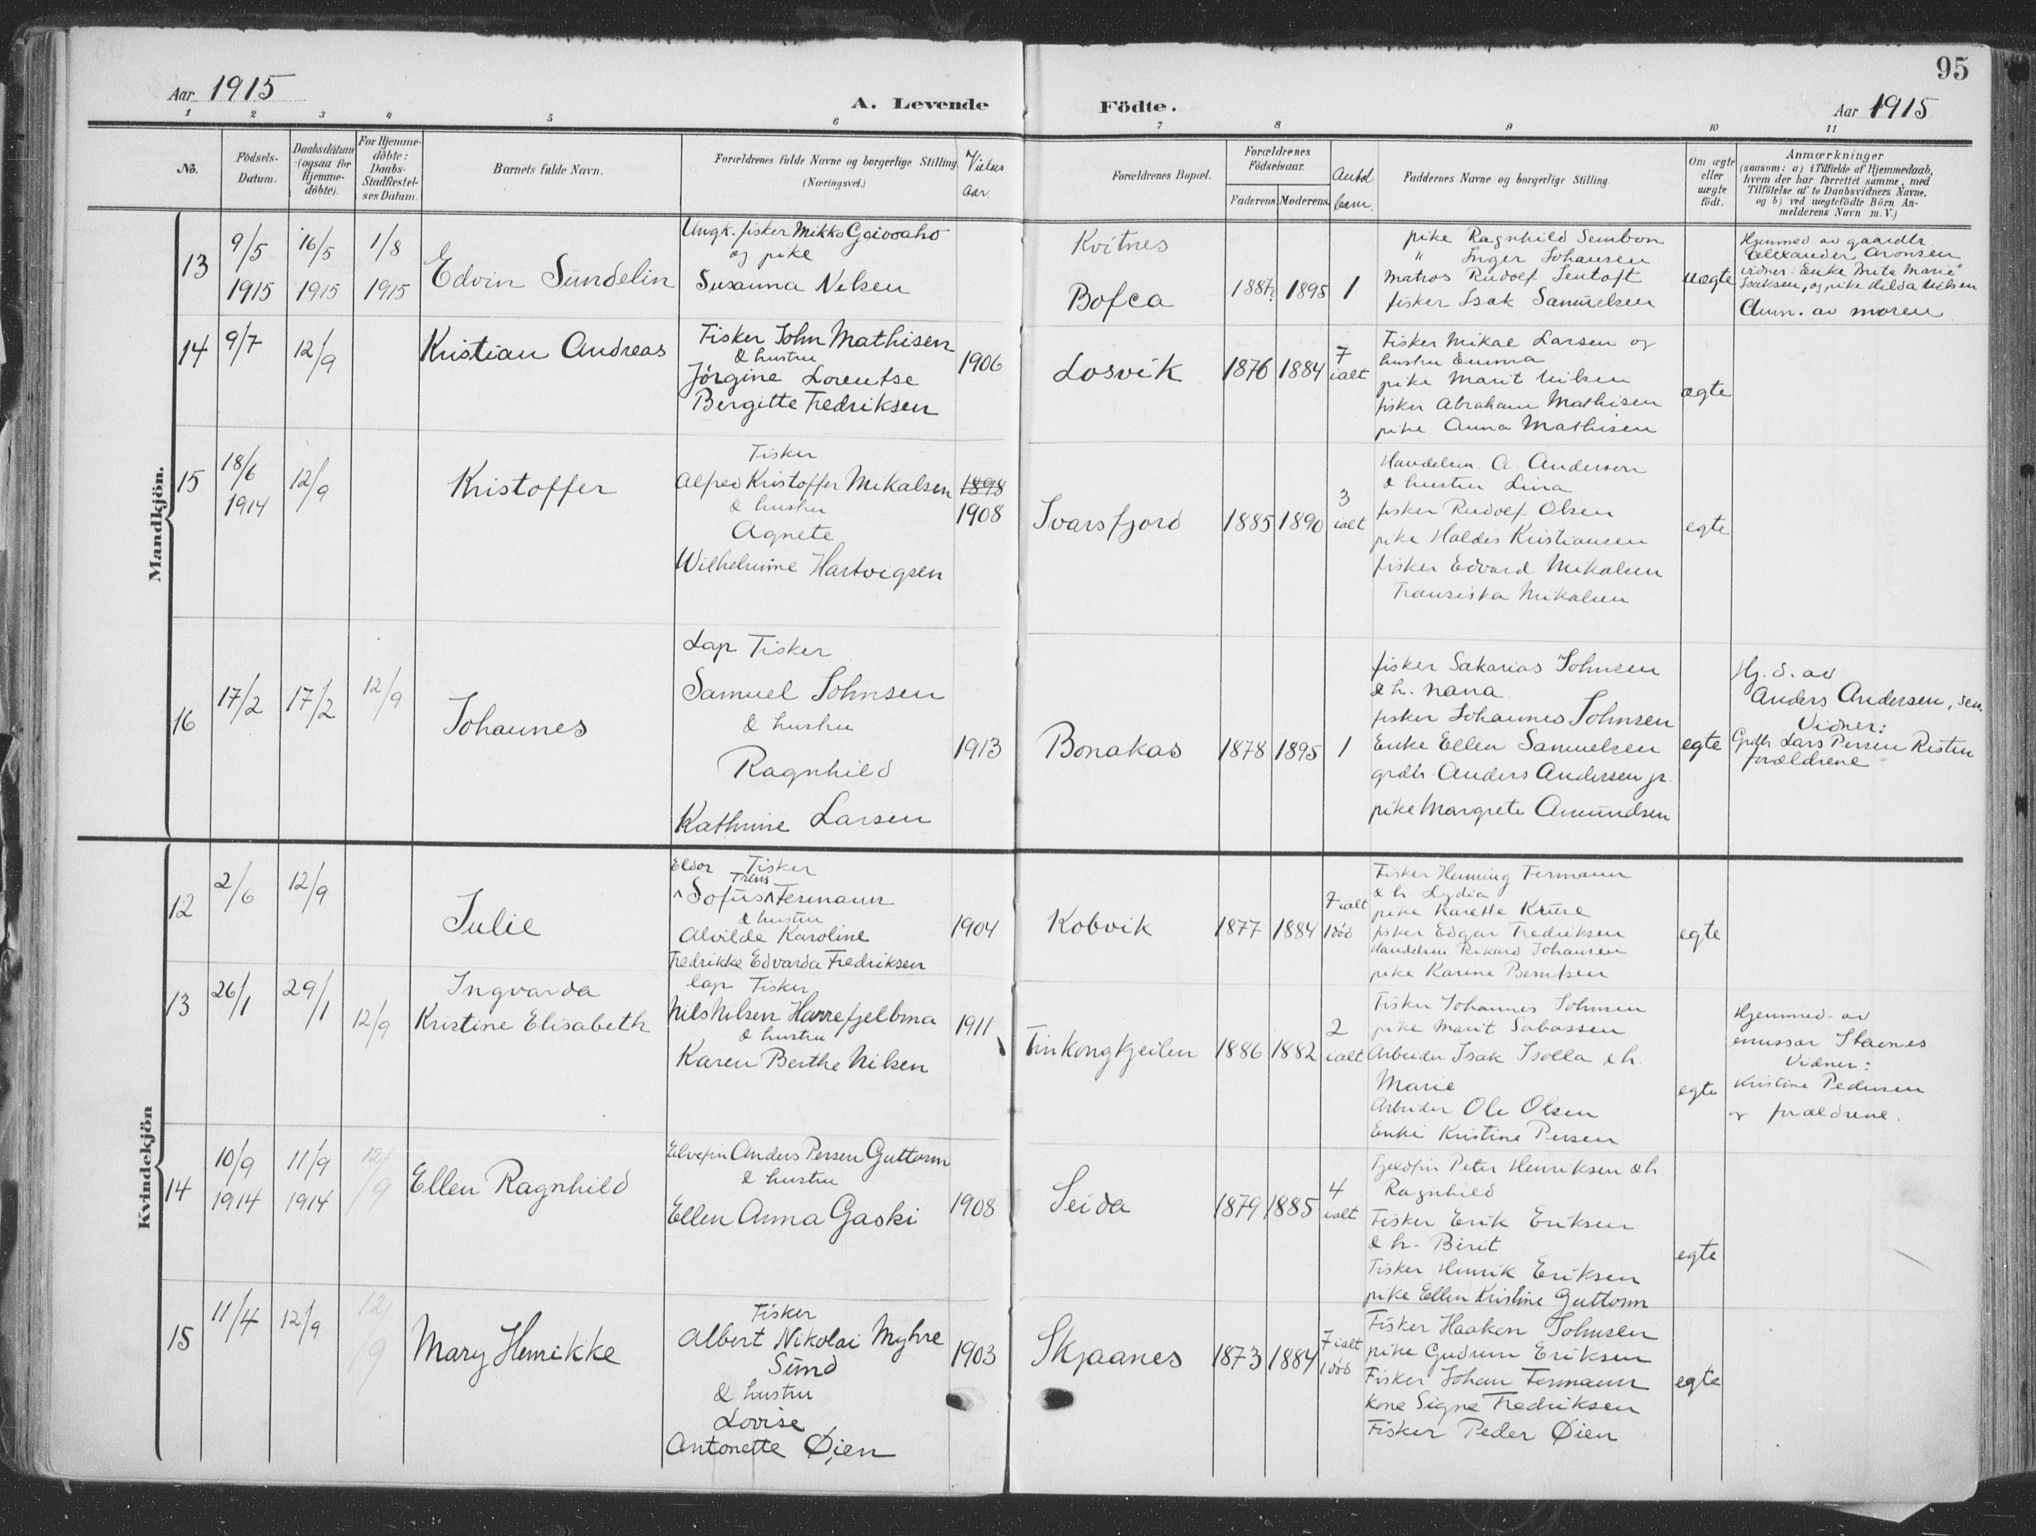 Aar 1915
A. Levende
Födte.
Aar 1915
95
1 2 3 4 5 6 7 8 9 10 11
No.
Födsels-
Datum.
Daabsdatum
(ogsaa for
Hjemme-
döbte).
For Hjemme-
döbte:
Daabs-
Stadfæstel-
ses Datum.
Barnets fulde Navn.
Forældrenes fulde Navne og borgerlige Stilling
(Næringsvei.)
Vielses
aar.
Forældrenes Bopæl.
Forældrenes
Födselsaar.
Faderens. Moderens.
Antal
barn.
Faddernes Navne og borgerlige Stilling.
Om ægte
eller
uægte
födt.
Anmærkninger
(saasom: a) i Tilfælde af Hjemmedaab,
hvem der har forrettet samme, med
Tilföielse af to Daabsvidners Navne.
og b) ved uægtefödte Börn An-
melderens Navn m. V.)
Mandkjön.
13
9/5
1915
16/5
1915
1/8
1915
Edvin Sundelin
Ungk. fisker Mikko Goivoaho
og pike
Susanna Nilsen
Kvitnes
Bofca
1887?
1895
1
pike Ragnhild Sembon
" Inger Johansen
Matros Rudolf Sentoft
fisker Isak Samuelsen
uægte
Hjemmed av gaardbr.
Alexander Aronsen
vidner: Enke Brita Marie
Isaksen, og pike Hilda Nilsen
Anm. av moren
14
9/7
12/9
Kristian Andreas
Fisker John Mathisen
& hustru
Jørgine Lorentse
Bergitte Fredriksen
1906
Losvik
1876
1884
7
ialt
Fisker Mikal Larsen og
hustru Emma
pike Marit Nilsen
fisker Abraham Mathisen
pike Anna Mathisen
ægte
15
18/6
1914
12/9
Kristoffer
Fisker
Alfred Kristoffer Mikalsen
& hustru
Agnete
Wilhelmine Hartvigsen
1898
1908
Ivarsfjord
1885
1890
3
ialt
Handelsm. A. Anderson
& hustru Lina
fisker Rudolf Olsen
pike Haldis Kristiansen
fisker Edvard Mikalsen
Fransiska Mikalsen
egte
16
17/2
17/2
12/9
Johannes
Lap Fisker
Samuel Johnsen
& hustru
Ragnhild
Kathrine Larsen
1913
Bonakas
1878
1895
1
fisker Sakarias Johnsen
& h. Nana.
fisker Johannes Johnsen
Enke Ellen Samuelsen
grdbr. Anders Andersen jr.
pike Margrete Amundsen
egte
Hj. d. av
Anders Andersen, sen.
Vidner:
Grdb. Lars Persen Risten
forældrene
Kvindekjön
12
2/6
12/9
Julie
Eldor Fisker
Sofus Trius Fermann
& hustru
Alvilde Karoline
Fredrikke Edvarda Fredriksen
1904
Kobvik
1877
1884
7 ialt
1 død
Fisker Henning Fermann
& h. Lydia
pike Karette Kruse
fisker Edgar Fredriksen
Handelsm. Rikard Johansen
pike Karine Berntsen
egte
13
26/1
29/1
12/9
Ingvarda
Kristine Elisabeth
Lap Fisker
Nils Nilsen Harrefjelbma
& hustru
Karen Berthe Nilsen
1911
Finkongkjeilen
1886
1882
2
ialt
Fisker Johannes Johnsen
pike Marit Sabassen
Arbeider Isak Isolla & h.
Marie
Arbeider Ole Olsen
Enke Kristine Persen
egte
Hjemmed. av
emissær Staenes
Vidner:
Kristine Pedersen
og forældrene.
14
10/9
1914
11/9
1914
12/9
Ellen Ragnhild
Elvefin Anders Persen Guttorm
& hustru
Ellen Anna Gaski
1908
Seida
1879
1885
4
ialt
Fjeldfin Peter Henriksen & h.
Ragnhild
Fisker Erik Eriksen
& h. Birit
Fisker Henrik Eriksen
pike Ellen Kristine Guttorm
egte
15
11/4
12/9
12/9
Mary Henrikke
Fisker
Albert Nikolai Myhre
Sund
& hustru
Lovise
Antonette Øien
1903
Skjaanes
1873
1884
7 ialt
1 død
Fisker Haakon Johnsen
pike Gudrun Eriksen
Fisker Johan Fermann
kone Signe Fredriksen
Fisker Peder Øien
egte